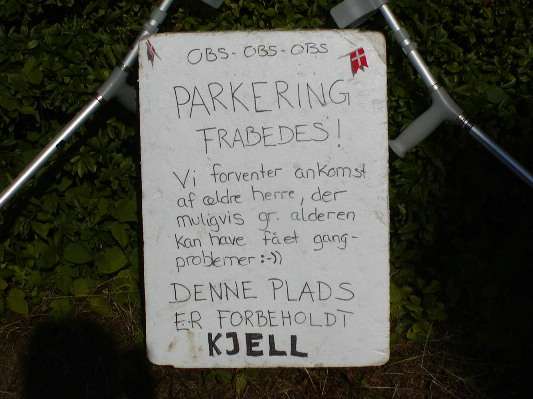 OBS - OBS - OBS
PARKERING
FRABEDES!
Vi forventer ankomst
af ældre herre, der
muligvis gr. alderen
kan have fået gang-
problemer :-))
DENNE PLADS
ER FORBEHOLDT
KJELL